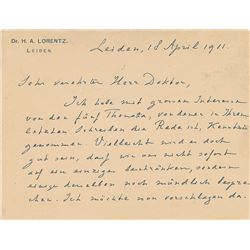 Dr. H. A. LORENTZ.
LEIDEN
Leiden, 18 April 1911.
Sehr verehrter Herr Doktor,
Ich habe mit grossem Interesse
von den fünf Themata, von denen in Ihrem
letzten Schreiben die Rede ist, Kenntnis
genommen. Vielleicht wird es doch
gut sein, dass wir uns nicht sofort
auf ein einziges beschränken, sondern
einige derselben noch mündlich bespre-
chen. Ich möchte nun vorschlagen da-